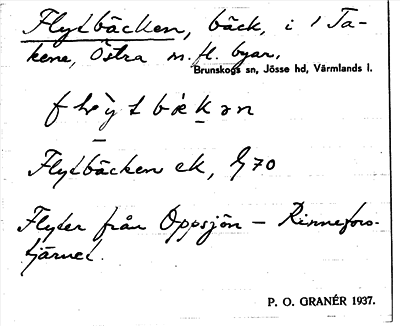 Flytbäcken, bäck, i 1 Ta-
kene, Östra m. fl. byar,
Brunskogs sn, Jösse hd, Värmlands l.
Flytbäcken ek, 70
Flyter från Oppsjön – Rinnefors-
tjärnet.
P. O. GRANÉR 1937.